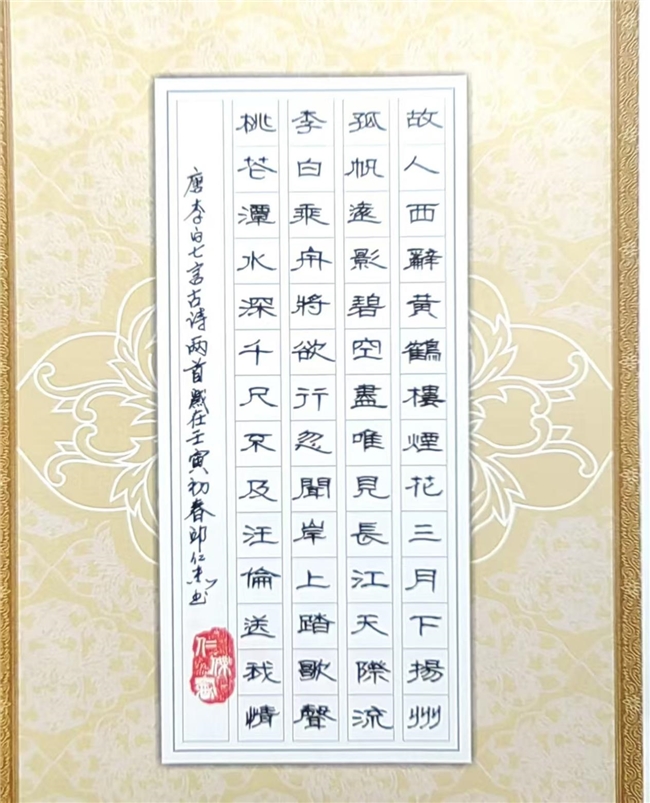 故人西辭黃鶴樓煙花三月下揚州
孤帆遠影碧空盡唯見長江天際流
李白乘舟將欲行忽聞岸上踏歌聲
桃花潭水深千尺不及汪倫送我情
唐李白七言古诗两首歲在壬寅初春郎仁杰书